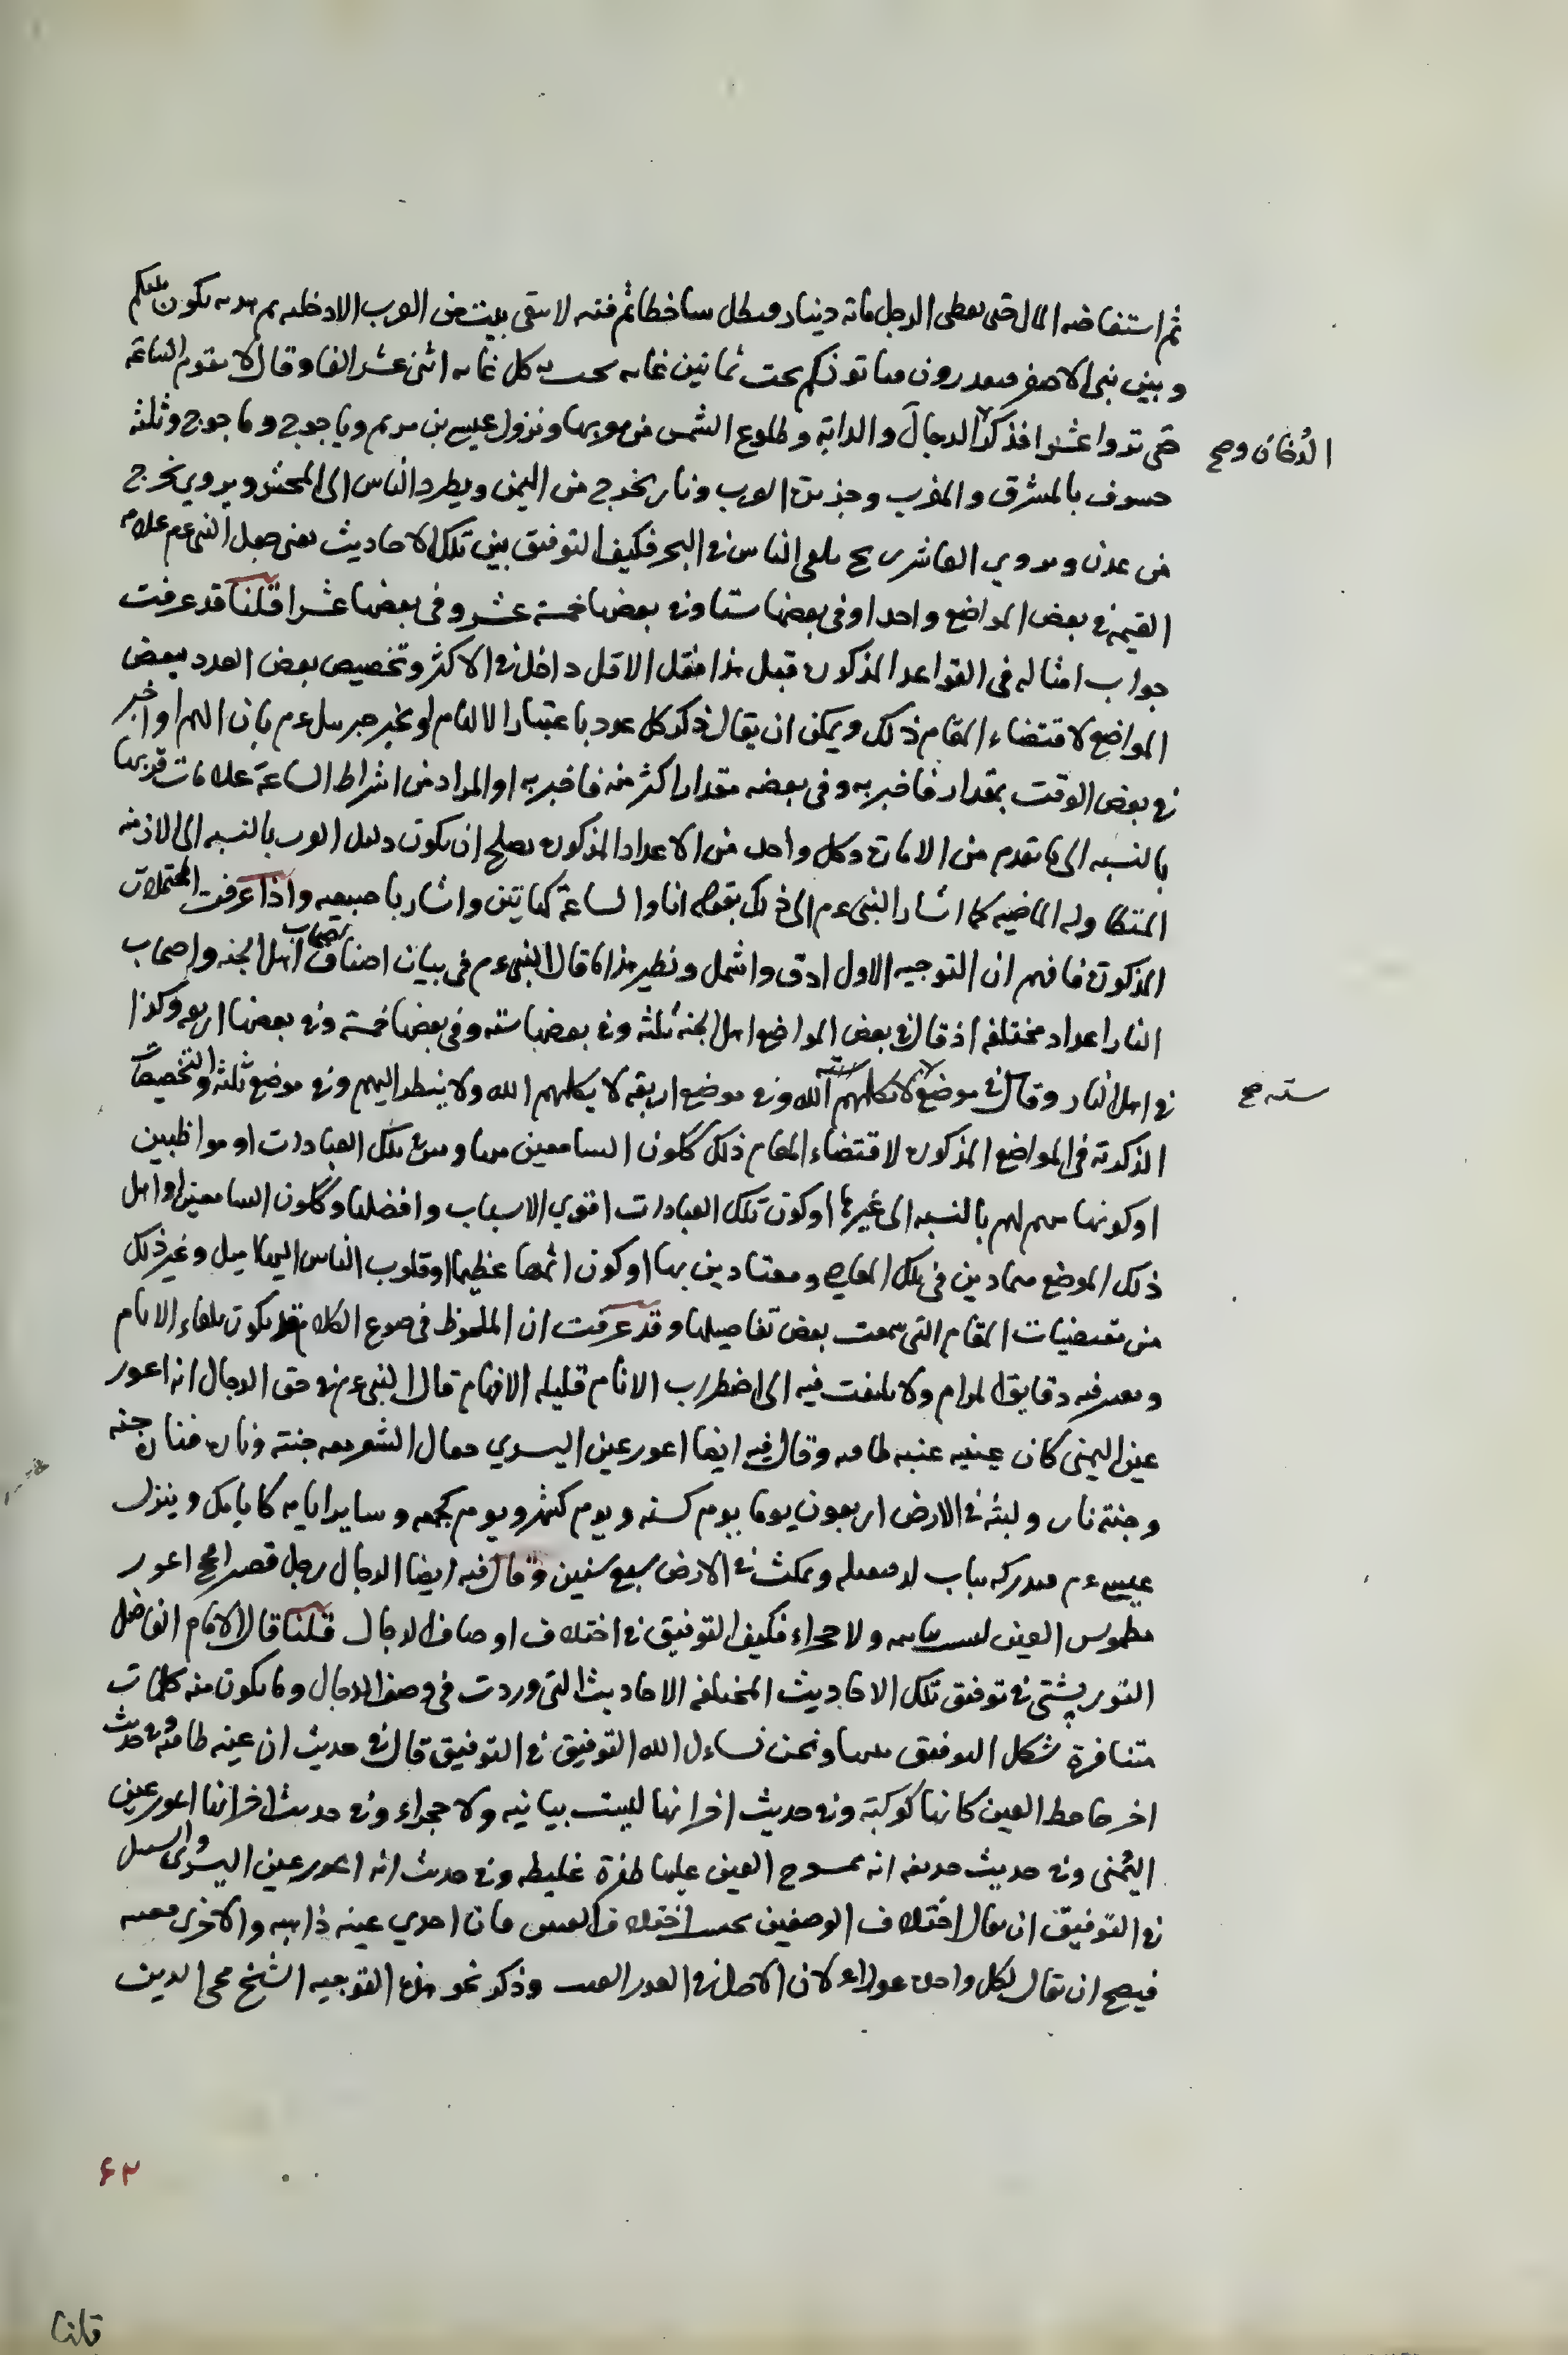 ثم استفاضه المال حتى يعطى الرجل مائه دينار فيظل ساخطا ثم فتنه لا يبقى بيت من العرب الا دخلته ثم هدنه يكون بينكم
وبين بنى الاصفر فيغدرون فياتونكم تحت ثمانين غايه تحت كل غايه اثنى عشر الفا وقال لا تقوم الساعة
حتى تروا عشرا فذكر الدجال والدابة وطلوع الشمس من مغربها ونزول عيسى بن مريم وياجوج وماجوج وثلثه
الدخان وصح
خسوف بالمشرق والمغرب وجزيرة العرب ونار يخرج من اليمن ويطرد الناس الى المحشر ويروي يخرج
من عدن ويروي العاشر ريح يلقى الناس في البحر فكيف التوفيق بين تلك الاحاديث يعنى جعل النبى عم علامه
القيمه في بعض المواضع واحدا وفى بعضها ستا وفي بعضها خمسة عشر وفى بعضها عشرا قلنا قد عرفت
جواب امثاله فى القواعد المذكوره قبل هذا فنقل الاقل داخل في الاكثر وتخصيص بعض العدد ببعض
المواضع لاقتضاء المقام ذلك ويمكن ان يقال ذكر كل عدد باعتبار الالهام او بخبر جبرييل عم بان الهم او اخبر
في بعض الوقت بمقدار فاخبر به وفى بعضه مقدارا اكثر منه فاخبر به او المراد من اشراط الساعة علامات قربها
بالنسبه الى ما تقدم من الامارة وكل واحد من الاعداد المذكوره يصلح ان يكون دليل القرب بالنسبه الى الازمنه
المتطاوله الماضيه كما اشار النبى عم الى ذلك بقوله انا والساعة كهاتين واشار باصبعيه واذا عرفت المحتملات
المذكورة فافهم ان التوجيه الاول ادق واشمل ونظير هذا ما قال النبى عم فى بيان اصناف اهل الجنه واصحاب
النار اعداد مختلفه اذ قال في بعض المواضع اهل الجنة ثلثه وفي بعضها سته وفى بعضها خمسة وفي بعضها اربعه وكذا
في اهل النار وقال في موضع لا يكلهم الله وفي موضع اربعة لا يكلهم الله ولا ينظر اليهم وفي موضع ثلثه والتخصيصات
سته صح
المذكورة فى المواضع المذكوره لاقتضاء المقام ذلك لكون السامعين تلك العبادات او مواظبين
او كونها اسهل لهم بالنسبه الى غيرها او كون تلك العبادات اقوي الاسباب وافضلها وكون السامعين او اهل
ذلك الموضع متمادين فى تلك المعاصي ومعتادين بها او كون اثمها عظيما او قلوب الناس اليها اميل وغير ذلك
من مقتضيات المقام التى سمعت بعض تفاصيلها وقد عرفت ان الملحوظ فى صوغ الكلام قد يكون
ويعرفه دقايق المرام ولا يلتفت فيه الى اضطراب الانام قليله الافهام قال النبى عم في حق الدجال انه اعور
عين اليمنى كان عينيه عنبه طافيه وقال فيه ايضا اعور عين اليسري جفال الشعر معه جنته وناره فناره جنه
وجنته نار ولبثه في الارض اربعون يوما يوم كسنه ويوم كشهر ويوم كجمعه وساير ايامه كايامكم وينزل
عيسى عم فيدركه بباب لد فيقتله ويمكث في الارض سبع سنين وقال فيه ايضا الدجال رجل قصير افحج اعور
مطموس العين ليست بناتيه ولا حجراء فكيف التوفيق في اختلاف اوصاف الدجال قلنا قال الامام الفاضل
التوربشتى في توفيق تلك الاحاديث المختلفه الاحاديث التى وردت فى وصف الدجال وما يكون منه كلمات
متنافرة يشكل التوفيق بينها ونحن نساءل الله التوفيق في التوفيق قال في حديث ان عينه طافيه وفي حديث
اخر جاحظ العين كانها كوكبة وفي حديث اخر انها ليست بناتيه ولا حجراء وفي حديث اخر انها اعور عين
اليمنى وفي حديث حذيفه انه ممسوح العين عليها ظفرة غليظه وفي حديث انه اعور عين اليسرى والسبيل
في التوفيق ان يقال اختلاف الوصفين بحسب اختلاف العينين فان احدي عينه ذاهبه والاخرى معيبه
فيصح ان يقال لكل واحده عوراء لان الاصل في العور العيب وذكر نحو هذه التوجيه الشيخ محى الدين
۶۲
قلنا